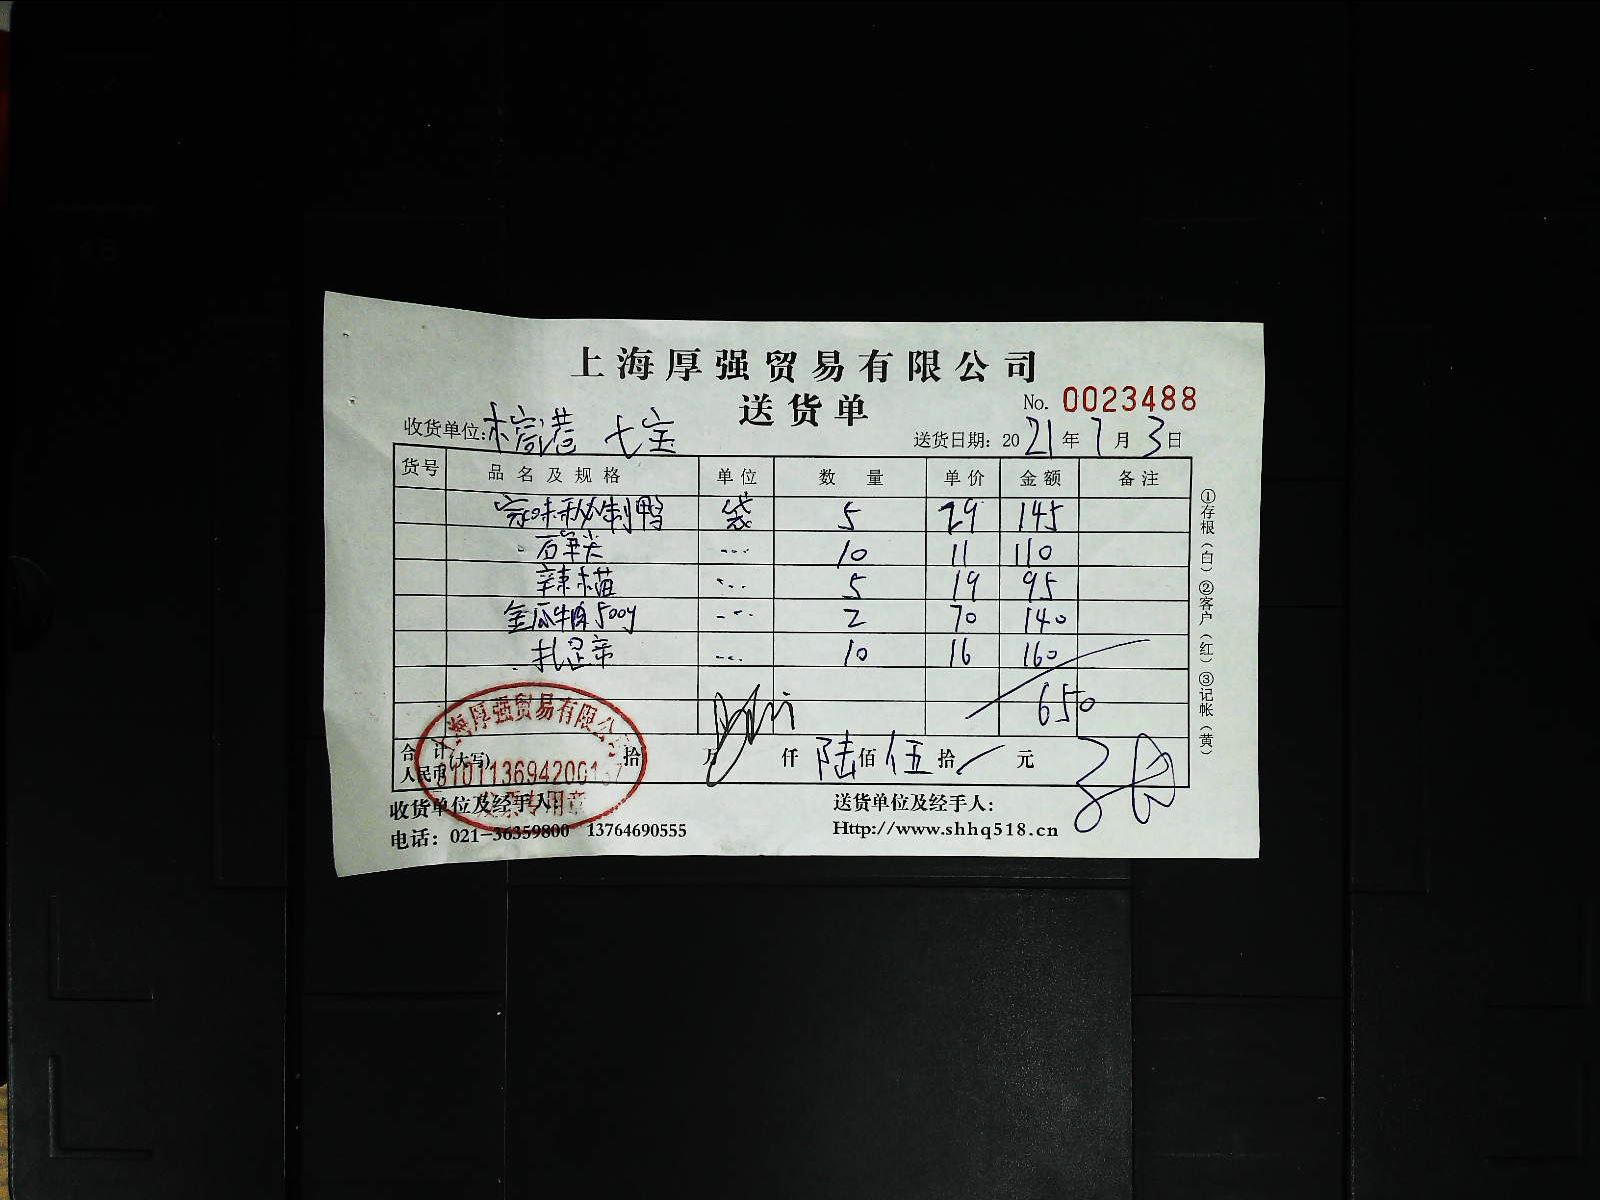 上海厚强贸易有限公司
送货单
No. 0023488
收货单位: 七宝
送货日期: 2021年7月3日
货号 品名及规格 单位 数量 单价 金额 备注
秘制鸭 袋 5 29 145
10 11 110
辣 5 19 95
金瓜 500g 2 70 140
扎 10 16 160
650
合计
人民币(大写) 拾 万 仟 陆佰伍拾 元
收货单位及经手人:
送货单位及经手人:
电话: 021-36359800 13764690555
Http://www.shhq518.cn
①存根(白)②客户(红)③记帐(黄)
上海厚强贸易有限公司
发票专用章